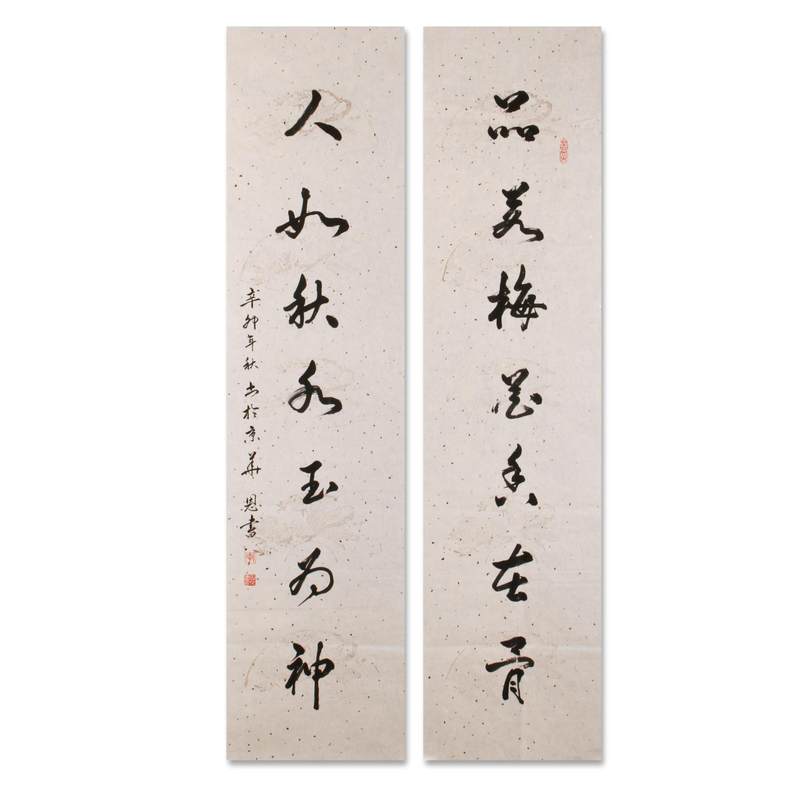 品若梅花香在骨
人如秋水玉为神
辛卯年秋书於京华 恩书